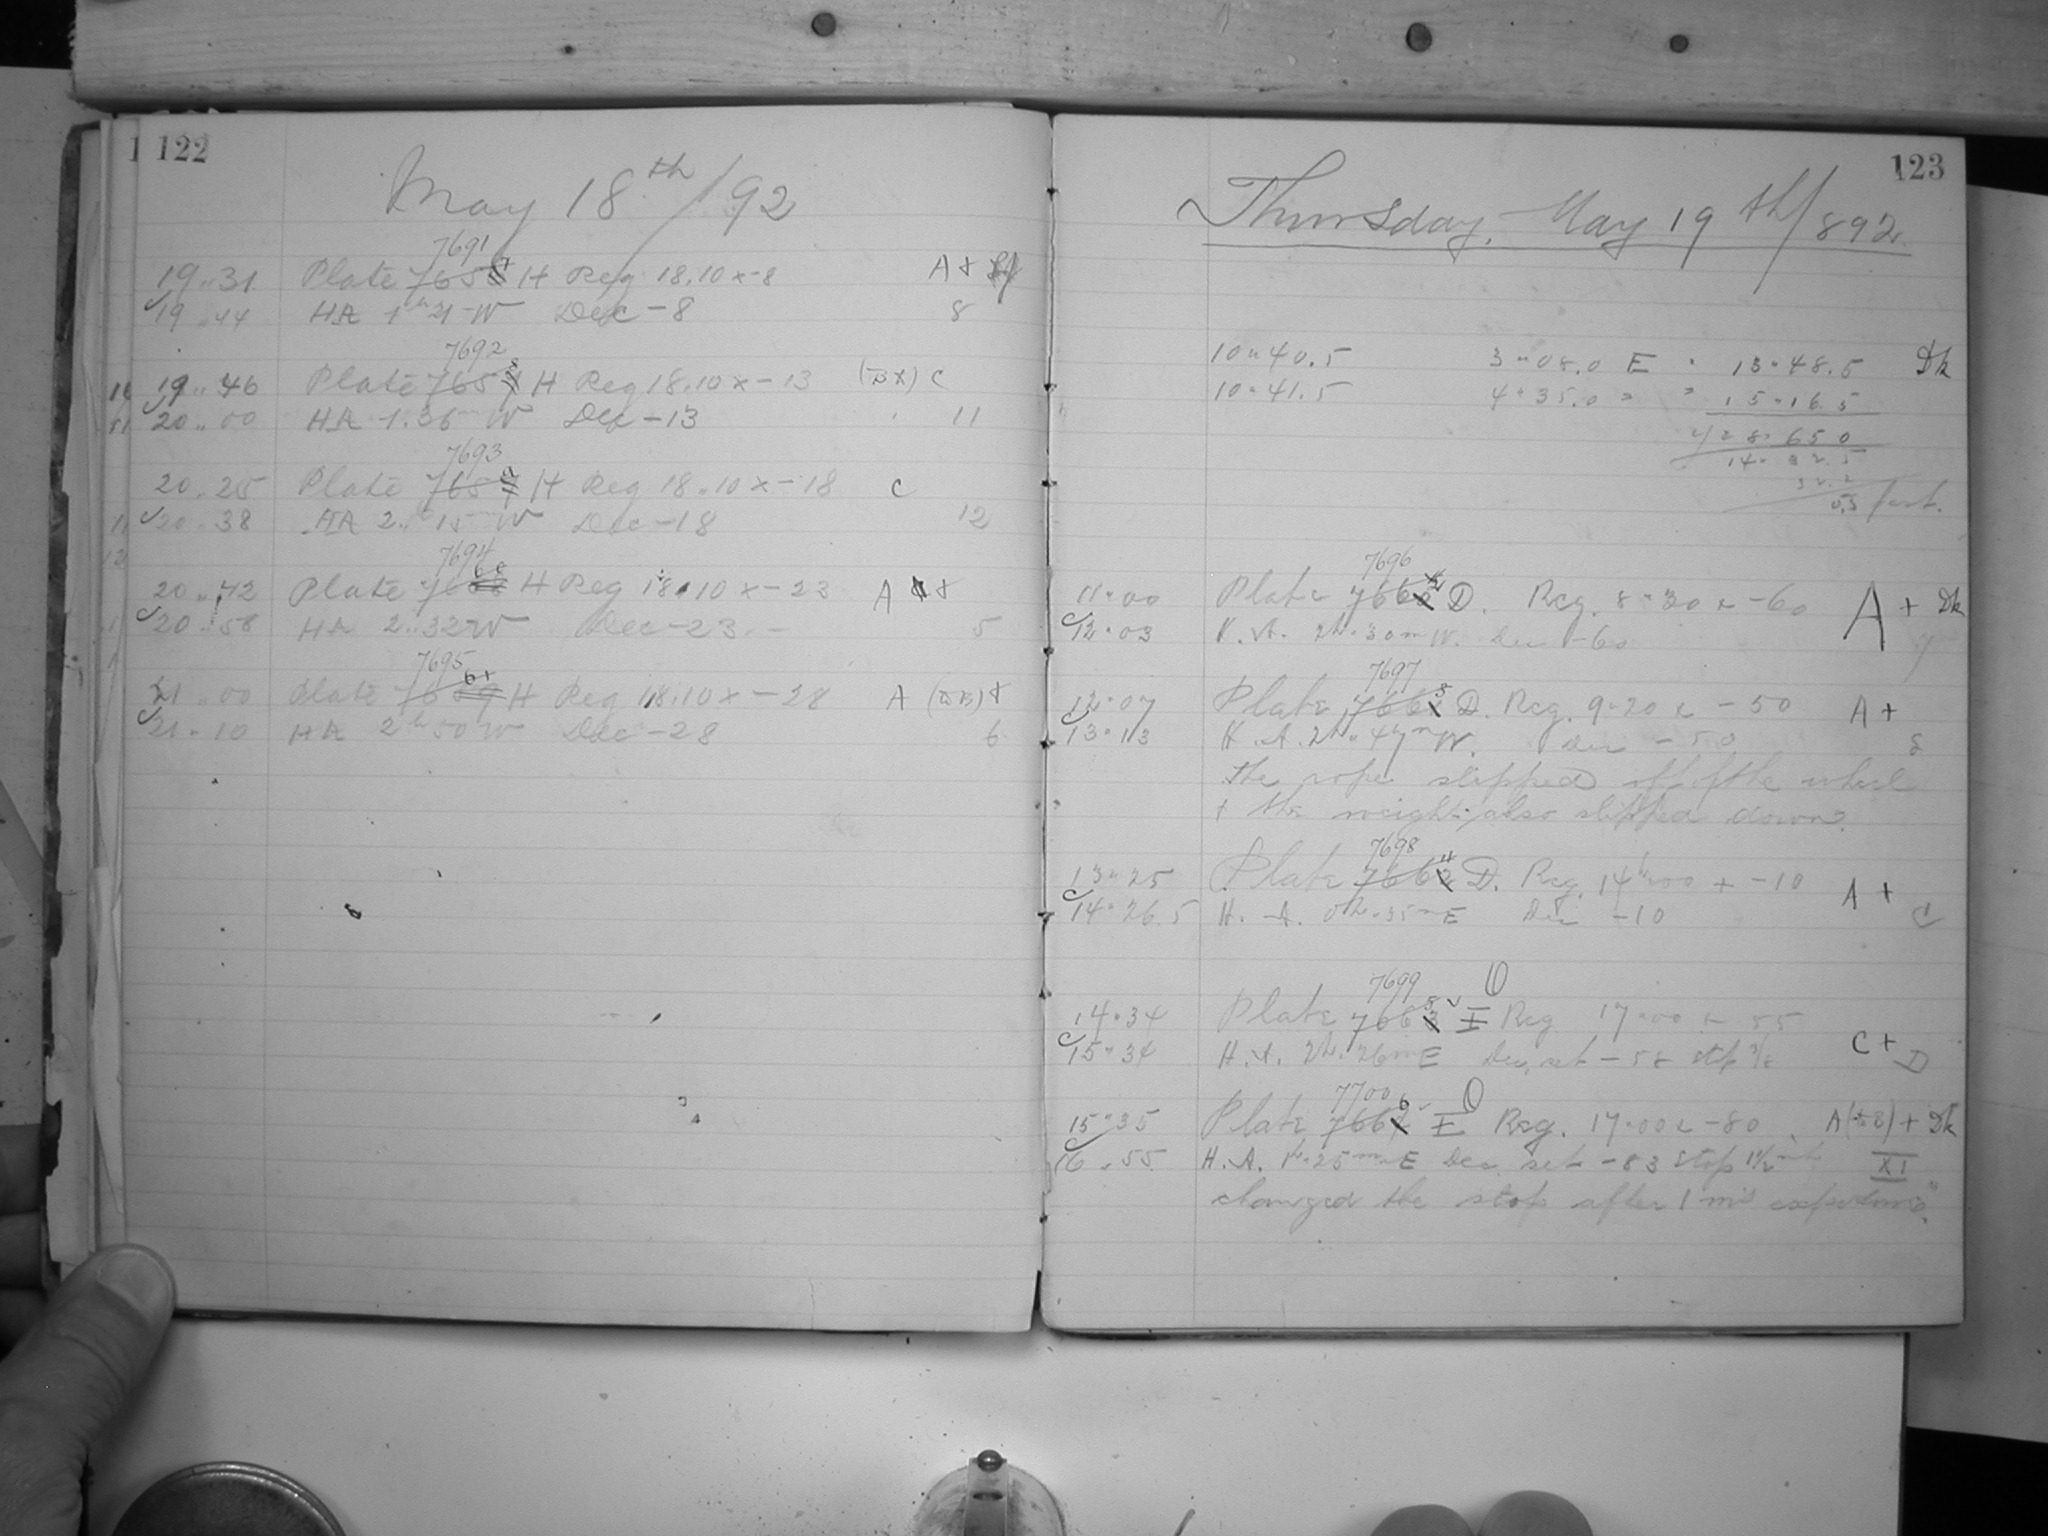 122
May 18th/92
7691
19..31 Plate 7658 H Reg 18.10 x -8 A +
19..44 HA 1h 21 W Dec -8 8
7692
19..46 Plate 765 H Reg 18.10 x -13 C
20..00 HA 1.36 W Dec -13 11
7693
20..25 Plate 765 H Reg 18..10 x -18 C
20..38 HA 2..15m W Dec -18 12
7694
20..42 Plate H Reg 18.10 x -23 A
20..58 HA 2..32 W Dec -23 5
7695
21..00 Plate H Reg 18.10 x -28 A
21..10 HA 2h 50 W Dec -28 6
123
Thursday, May 19th/892
10"40.5 3"08.0 E " 13"48.5 Dk
10"41.5 4"35.0 " " 15"16.5
7696
11"00 Plate 766 D. Reg. 8"30 x -60 A + Dk
12"03 H.A. 2h"30m W. Dec -60
7697
12"07 Plate 766 D. Reg. 9"20 x -50 A +
13"13 H.A. 2h"47m W. Dec -50 8
the rope slipped off of the wheel
+ the weight also slipped down.
7698
13"25 Plate 766 D. Reg. 14h"00 x -10 A +
14"26.5 H.A. 0h"35m E Dec -10
7699
14"34 Plate 766 I Reg 17"00 x 55
15"34 H.A. 2h"26m E Dec. set -58 stop C + D
7700
15"35 Plate 766 I Reg. 17"00 x -80 A + Dk
16"55 H.A. 1h"25m E Dec. set -83 stop XI
changed the stop after 1 exposure.